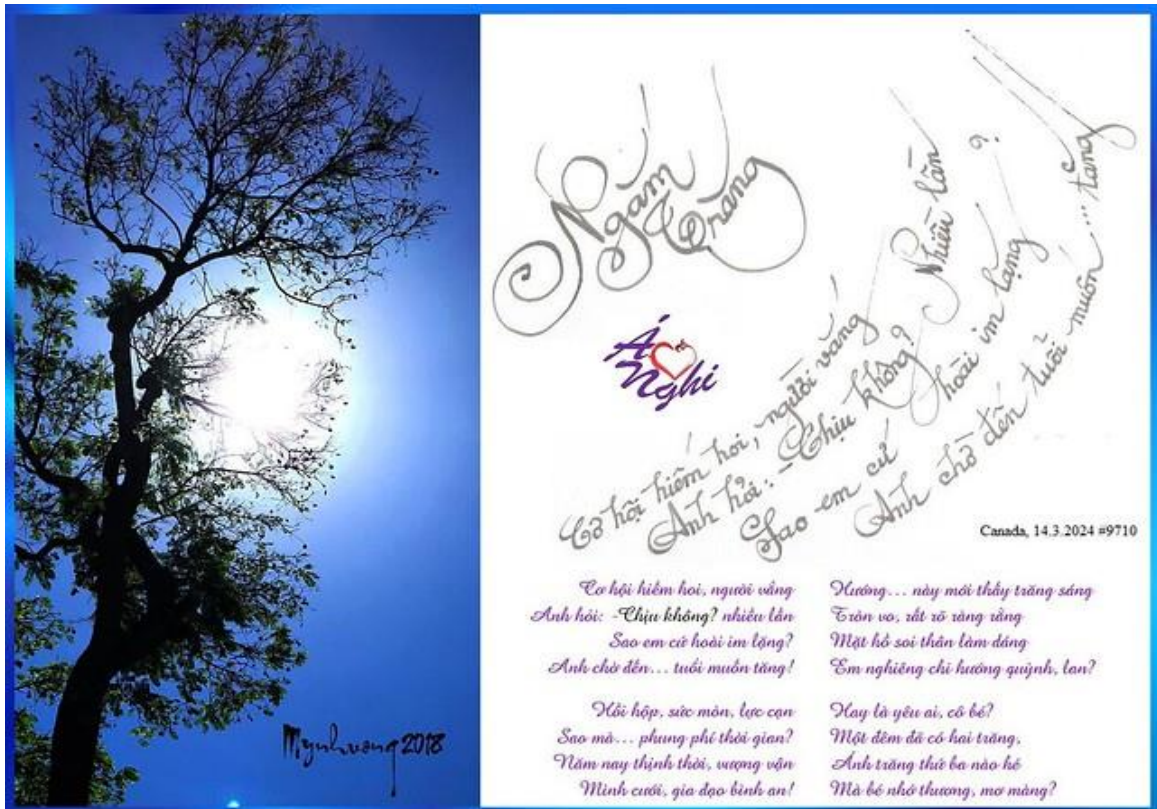 Ngắm
Trăng
Á
Nghi
Cơ hội hiếm hoi, người vắng
Anh hỏi: - Chịu không? Nhiều lần
Sao em cứ hoài im lặng?
Anh chờ đến tuổi muốn... tăng
Canada, 14.3.2024 #9710
Cơ hội hiếm hoi, người vắng
Anh hỏi: -Chịu không? nhiều lần
Sao em cứ hoài im lặng?
Anh chờ đến... tuổi muốn tăng!
Hồi hộp, sức mòn, lực cạn
Sao mà... phung phí thời gian?
Năm nay thịnh thời, vượng vận
Mình cưới, gia đạo bình an!
Hướng... này mới thấy trăng sáng
Tròn vo, rất rõ ràng rằng
Mặt hồ soi thân làm dáng
Em nghiêng chi hướng quỳnh, lan?
Hay là yêu ai, cô bé?
Một đêm đã có hai trăng,
Ánh trăng thứ ba nào hé
Mà bé nhớ thương, mơ màng?
Mynhuong 2018